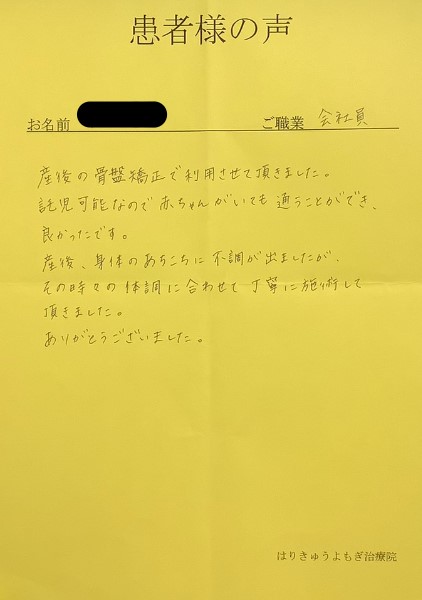 患者様の声
お名前 ご職業 会社員
産後の骨盤矯正で利用させて頂きました。
託児可能なので赤ちゃんがいても通うことができ、
良かったです。
産後、身体のあちこちに不調が出ましたが、
その時々の体調に合わせて丁寧に施術して
頂きました。
ありがとうございました。
はりきゅうよもぎ治療院